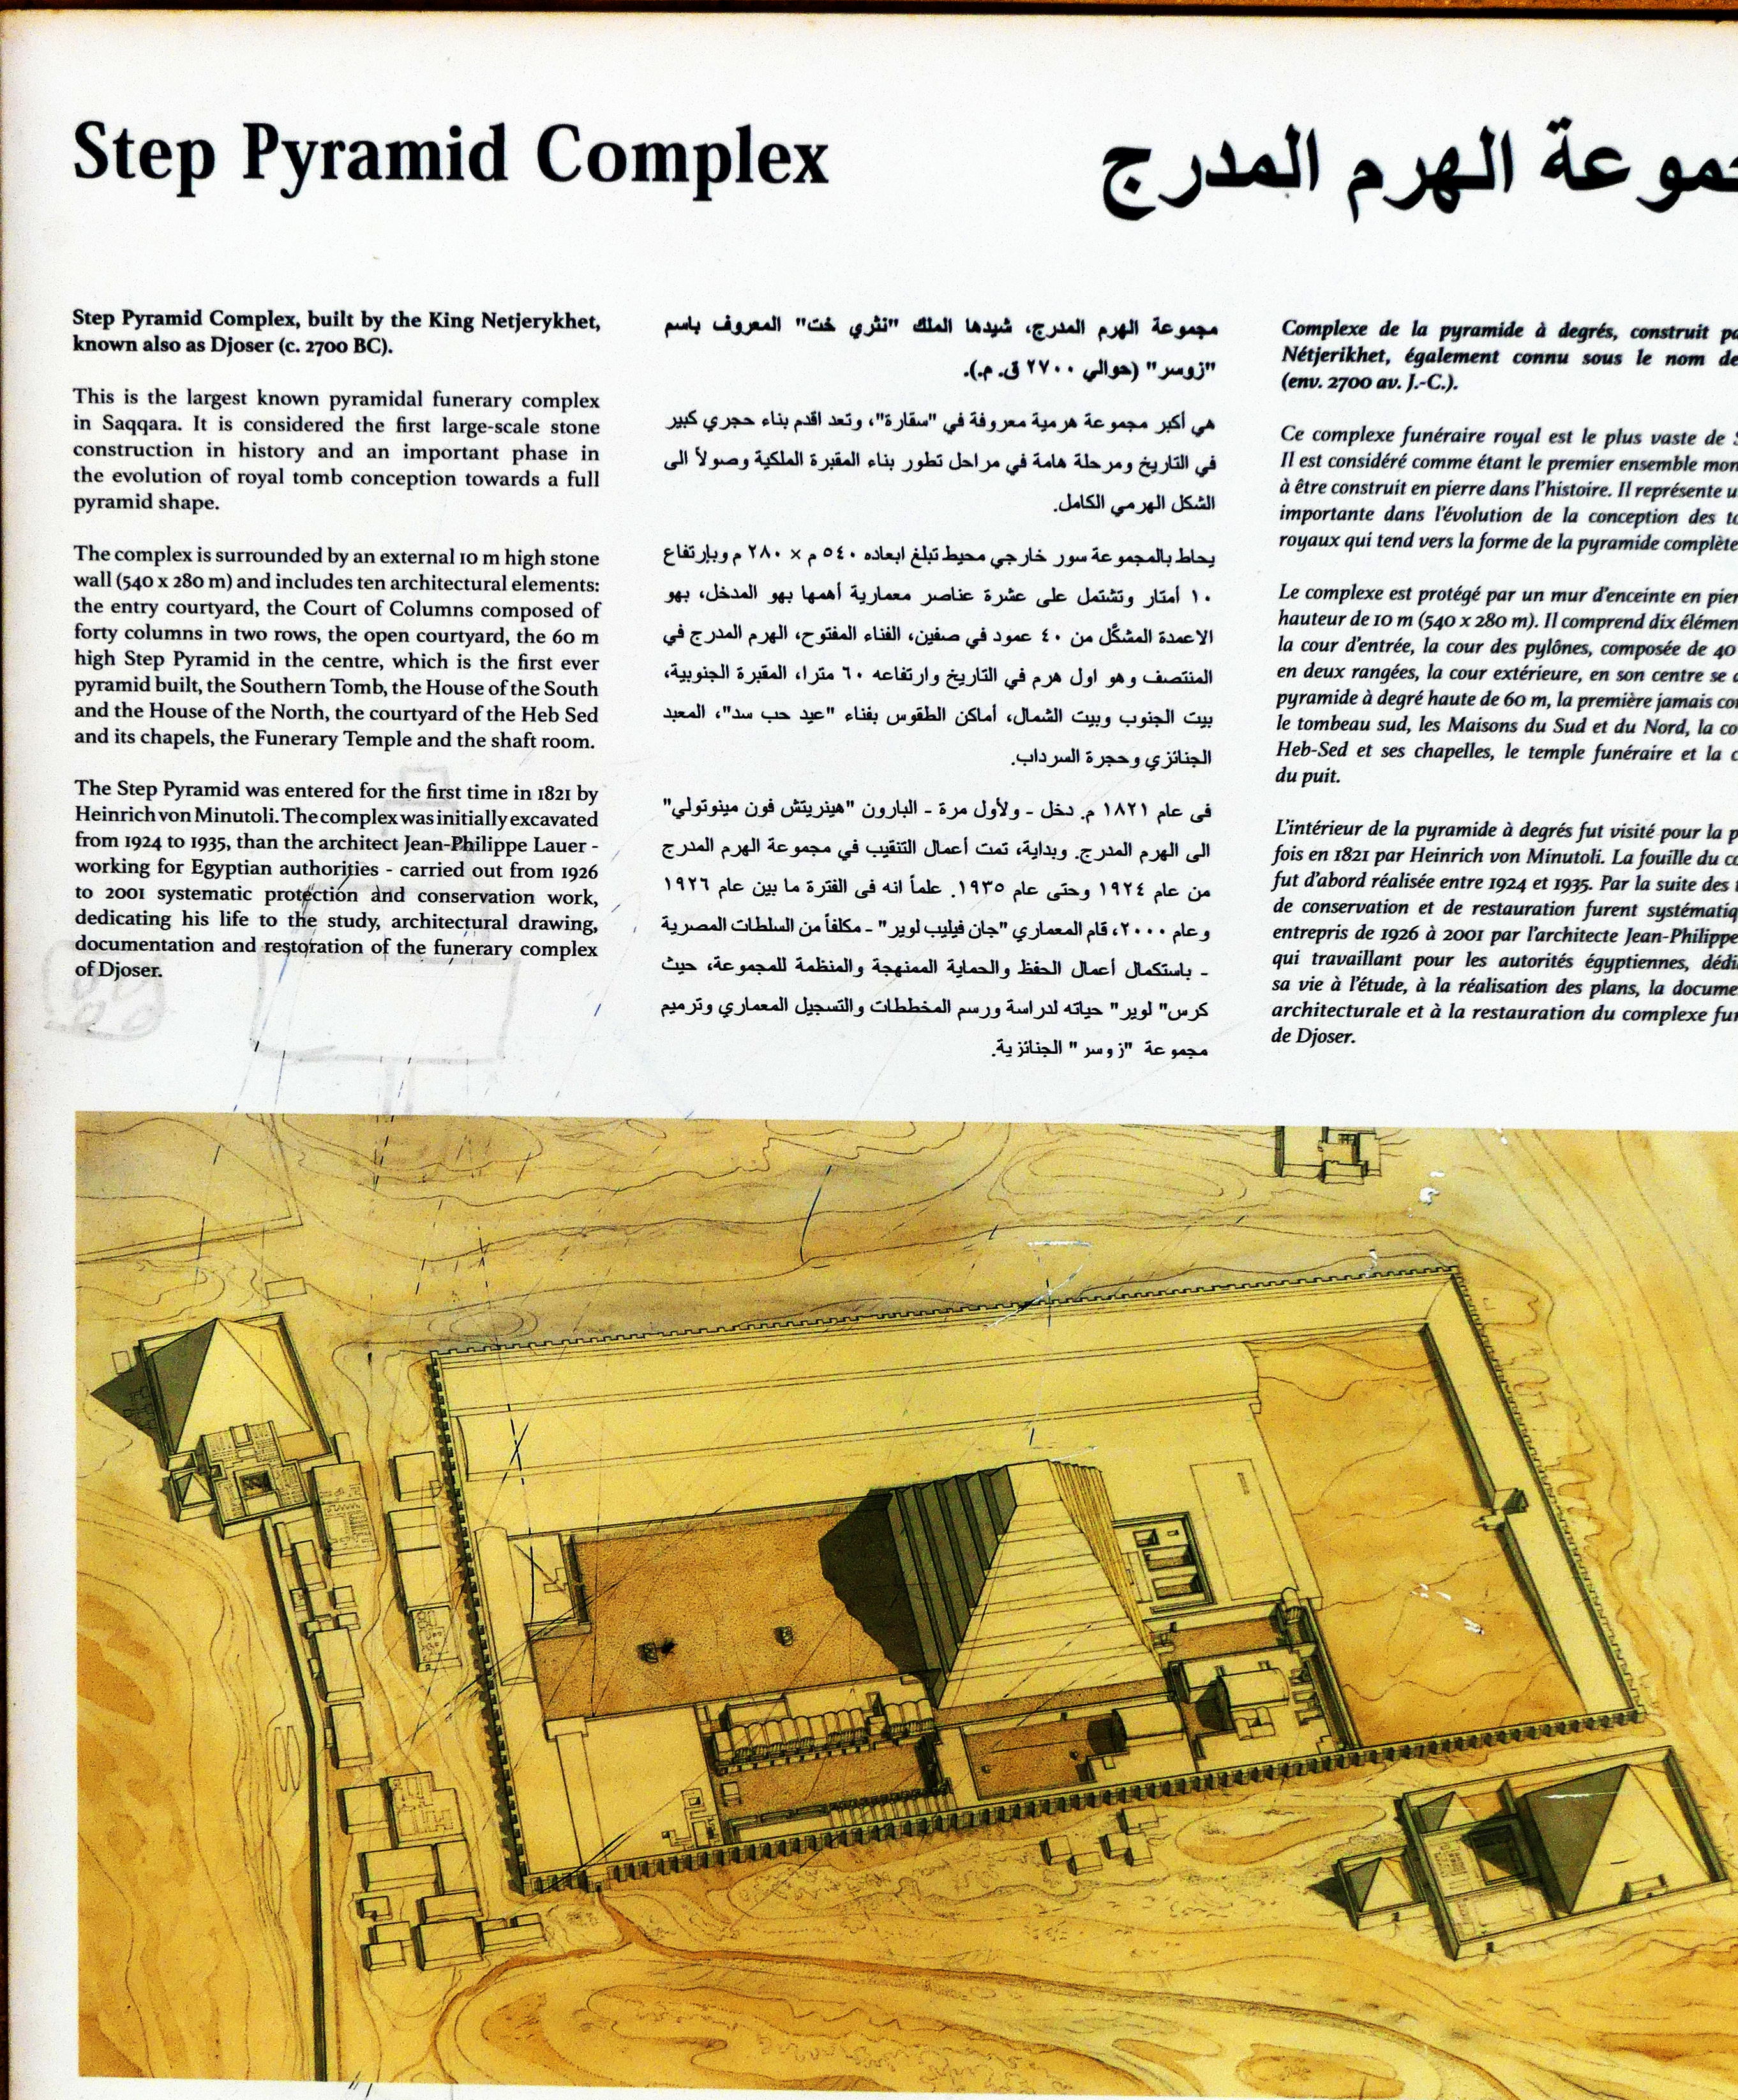 Step Pyramid Complex
الهرم المدرج
Step Pyramid Complex, built by the King Netjerykhet,
known also as Djoser (c. 2700 BC).
This is the largest known pyramidal funerary complex
in Saqqara. It is considered the first large-scale stone
construction in history and an important phase in
the evolution of royal tomb conception towards a full
pyramid shape.
The complex is surrounded by an external 10 m high stone
wall (540 x 280 m) and includes ten architectural elements:
the entry courtyard, the Court of Columns composed of
forty columns in two rows, the open courtyard, the 60 m
high Step Pyramid in the centre, which is the first ever
pyramid built, the Southern Tomb, the House of the South
and the House of the North, the courtyard of the Heb Sed
and its chapels, the Funerary Temple and the shaft room.
The Step Pyramid was entered for the first time in 1821 by
Heinrich von Minutoli. The complex was initially excavated
from 1924 to 1935, than the architect Jean-Philippe Lauer -
working for Egyptian authorities - carried out from 1926
to 2001 systematic protection and conservation work,
dedicating his life to the study, architectural drawing,
documentation and restoration of the funerary complex
of Djoser.
مجموعة الهرم المدرج، شيدها الملك "نثري خت" المعروف باسم
"زوسر" (حوالي ٢٧٠٠ ق. م.).
هي أكبر مجموعة هرمية معروفة في "سقارة"، وتعد اقدم بناء حجري كبير
في التاريخ ومرحلة هامة في مراحل تطور بناء المقبرة الملكية وصولاً الى
الشكل الهرمي الكامل.
يحاط بالمجموعة سور خارجي محيط تبلغ ابعاده ٥٤٠ م × ٢٨٠ م وبإرتفاع
١٠ أمتار وتشتمل على عشرة عناصر معمارية أهمها بهو المدخل، بهو
الاعمدة المشكّل من ٤٠ عمود في صفين، الفناء المفتوح، الهرم المدرج في
المنتصف وهو اول هرم في التاريخ وارتفاعه ٦٠ مترا، المقبرة الجنوبية،
بيت الجنوب وبيت الشمال، أماكن الطقوس بفناء "عيد حب سد"، المعبد
الجنائزي وحجرة السرداب.
فى عام ١٨٢١ م. دخل - ولأول مرة - البارون "هينريتش فون مينوتولي"
الى الهرم المدرج. وبداية، تمت أعمال التنقيب في مجموعة الهرم المدرج
من عام ١٩٢٤ وحتى عام ١٩٣٥. علماً انه فى الفترة ما بين عام ١٩٢٦
وعام ٢٠٠٠، قام المعماري "جان فيليب لوير" - مكلفاً من السلطات المصرية
- باستكمال أعمال الحفظ والحماية الممنهجة والمنظمة للمجموعة، حيث
كرس" لوير" حياته لدراسة ورسم المخططات والتسجيل المعماري وترميم
مجموعة "زوسر" الجنائزية.
Complexe de la pyramide à degrés, construit
Nétjerikhet, également connu sous le nom de
(env. 2700 av. J.-C.).
Ce complexe funéraire royal est le plus vaste de
Il est considéré comme étant le premier ensemble
à être construit en pierre dans l'histoire. Il représente
importante dans l'évolution de la conception des
royaux qui tend vers la forme de la pyramide complète
Le complexe est protégé par un mur d'enceinte en
hauteur de 10 m (540 x 280 m). Il comprend dix
la cour d'entrée, la cour des pylônes, composée de 40
en deux rangées, la cour extérieure, en son centre se
pyramide à degré haute de 60 m, la première jamais
le tombeau sud, les Maisons du Sud et du Nord, la
Heb-Sed et ses chapelles, le temple funéraire et la
du puit.
L'intérieur de la pyramide à degrés fut visité pour la
fois en 1821 par Heinrich von Minutoli. La fouille du
fut d'abord réalisée entre 1924 et 1935. Par la suite des
de conservation et de restauration furent
entrepris de 1926 à 2001 par l'architecte Jean-Philippe
qui travaillant pour les autorités égyptiennes,
sa vie à l'étude, à la réalisation des plans, la
architecturale et à la restauration du complexe
de Djoser.